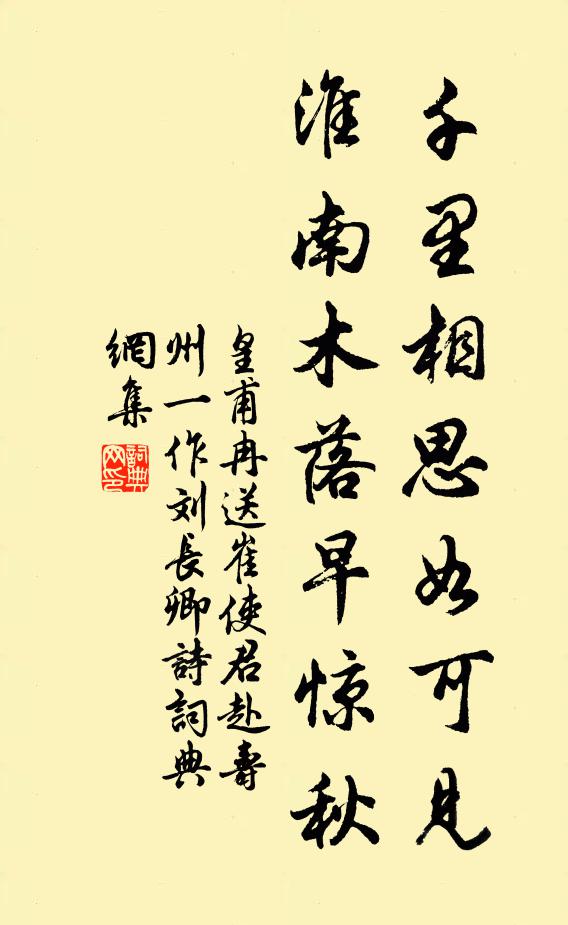 千里相思如可見
淮南木落早惊秋
皇甫冉送崔使君赴壽
州一作刘長卿詩詞典
網集
詞典
网印